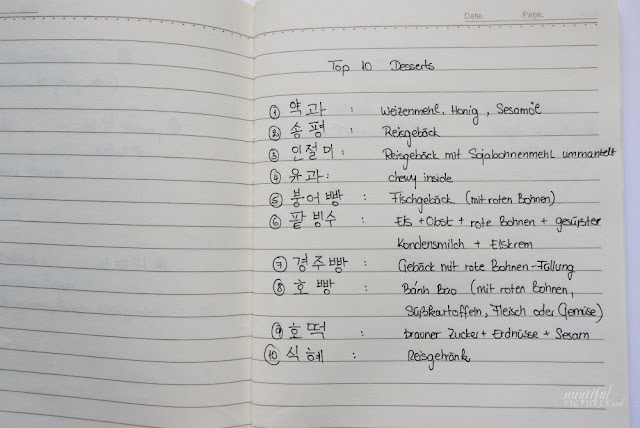 Date. Page.
Top 10 Desserts
① 약과 : Weizenmehl, Honig, Sesamöl
② 송평 : Reisgebäck
③ 인절미 : Reisgebäck mit Sojabohnenmehl ummantelt
④ 유과 : chewy inside
⑤ 붕어빵 : Fischgebäck (mit roten Bohnen)
⑥ 팥빙수 : Eis + Obst + rote Bohnen + gesüßter
Kondensmilch + Eiskrem
⑦ 경주빵 : Gebäck mit rote Bohnen-Füllung
⑧ 호빵 : Bánh Bao (mit roten Bohnen,
Süßkartoffeln, Fleisch oder Gemüse)
⑨ 호떡 : brauner Zucker + Erdnüsse + Sesam
⑩ 식혜 : Reisgetränk